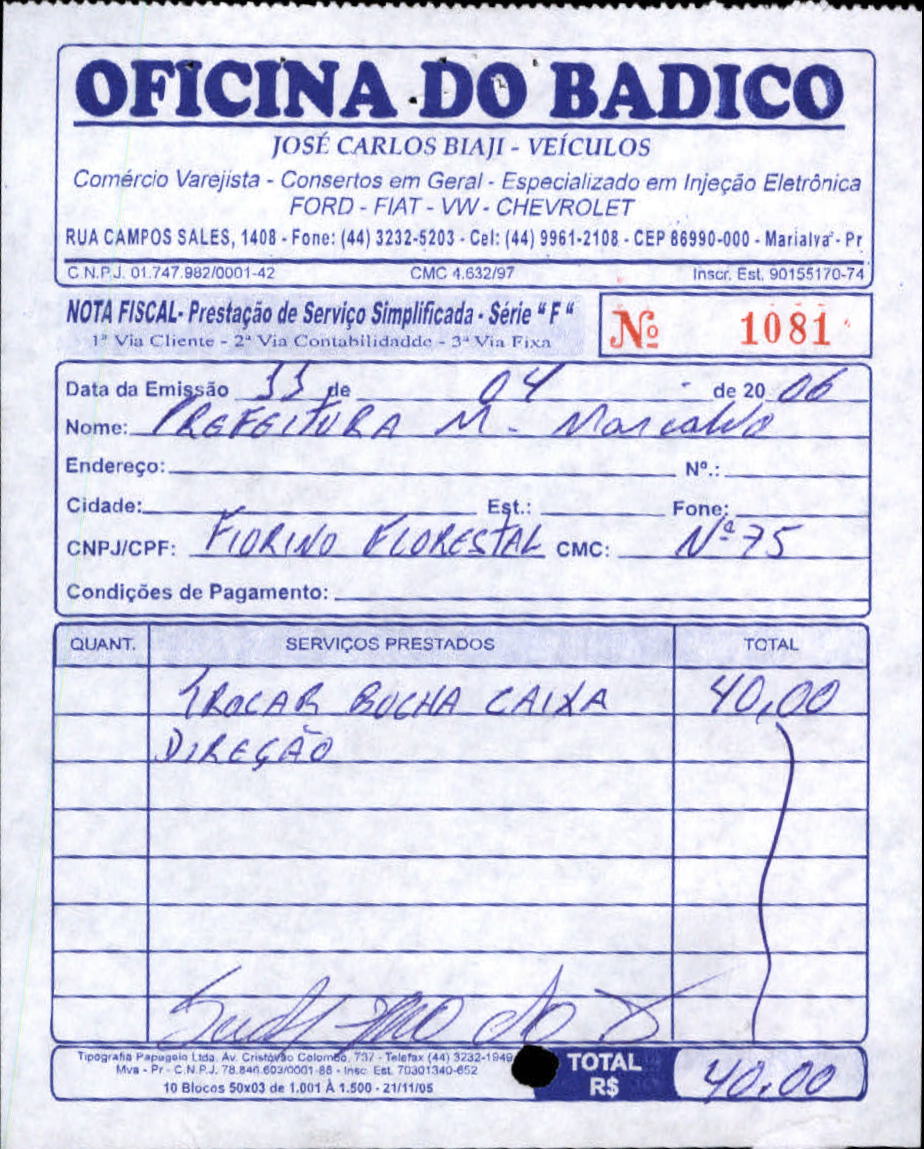 OFICINA DO BADICO
JOSÉ CARLOS BIAJI - VEÍCULOS
Comércio Varejista - Consertos em Geral - Especializado em Injeção Eletrônica
FORD - FIAT - VW - CHEVROLET
RUA CAMPOS SALES, 1408 - Fone: (44) 3232-5203 - Cel: (44) 9961-2108 - CEP 86990-000 - Marialva - Pr
C.N.P.J. 01.747.982/0001-42 CMC 4.632/97 Inscr. Est. 90155170-74
NOTA FISCAL- Prestação de Serviço Simplificada - Série "F"
1ª Via Cliente - 2ª Via Contabilidadde - 3ª Via Fixa
Nº 1081
Data da Emissão 11 de 04 de 2006
Nome: PREFEITURA M. Marialva
Endereço: Nº.:
Cidade: Est.: Fone:
CNPJ/CPF: FIORINO FLORESTAL CMC: Nº 75
Condições de Pagamento:
QUANT. SERVIÇOS PRESTADOS TOTAL
TROCAR BUCHA CAIXA 40,00
DIREÇÃO
Tipografia Papagaio Ltda. Av. Cristóvão Colombo, 737 - Telefax (44) 3232-1949
Mva - Pr - C.N.P.J. 78.846.603/0001-86 - Insc. Est. 70301340-652
10 Blocos 50x03 de 1.001 À 1.500 - 21/11/05
TOTAL R$ 40,00